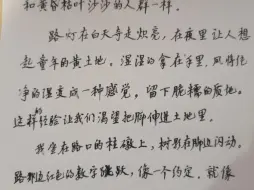 和黄昏枯叶沙沙的人群一样。
路灯在白天奇迹炽亮，在夜里让人想
起童年的黄土地，湿湿的拿在手里，风将干
净的湿变成一种感觉，留下脆糯的质地。
这样的经验让我们渴望把脚伸进土地里。
我坐在路口的柱礅上，树影在脚边闪动。
路那边红色的数字跳跃，像一个约定，就像